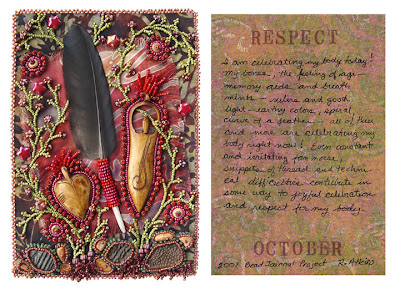 RESPECT
I am celebrating my body today!
My bones, the feeling of age -
memory aids and breath
mints - xylene and good
light - earthy colors, spiral,
curve of a feather - all of these
and more are celebrating my
body right now! Even constant
and irritating fan noise,
snippets of thread and techni-
cal difficulties contribute in
some way to joyful celebration
and respect for my body.
OCTOBER
2007 Bead Journal Project R. Atkins